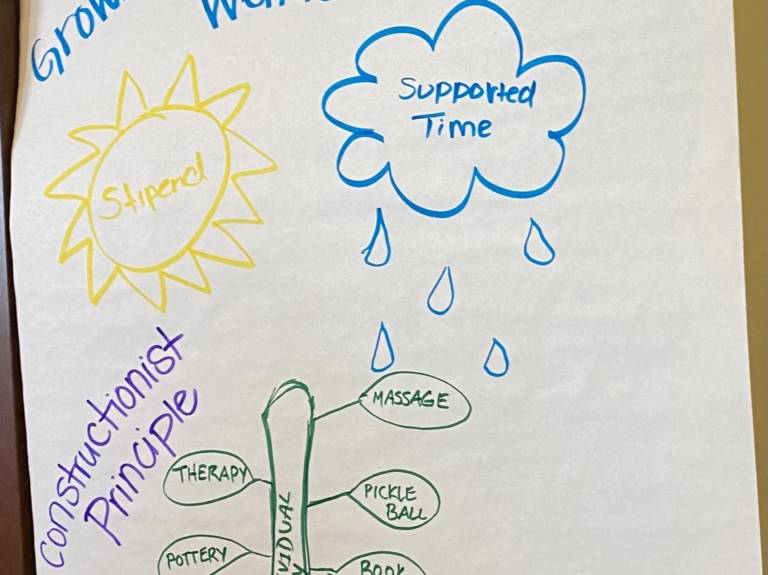 Supported
Time
Stipend
Constructionist
Principle
MASSAGE
THERAPY
PICKLE
BALL
POTTERY
BOOK